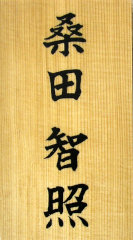 桑田智照